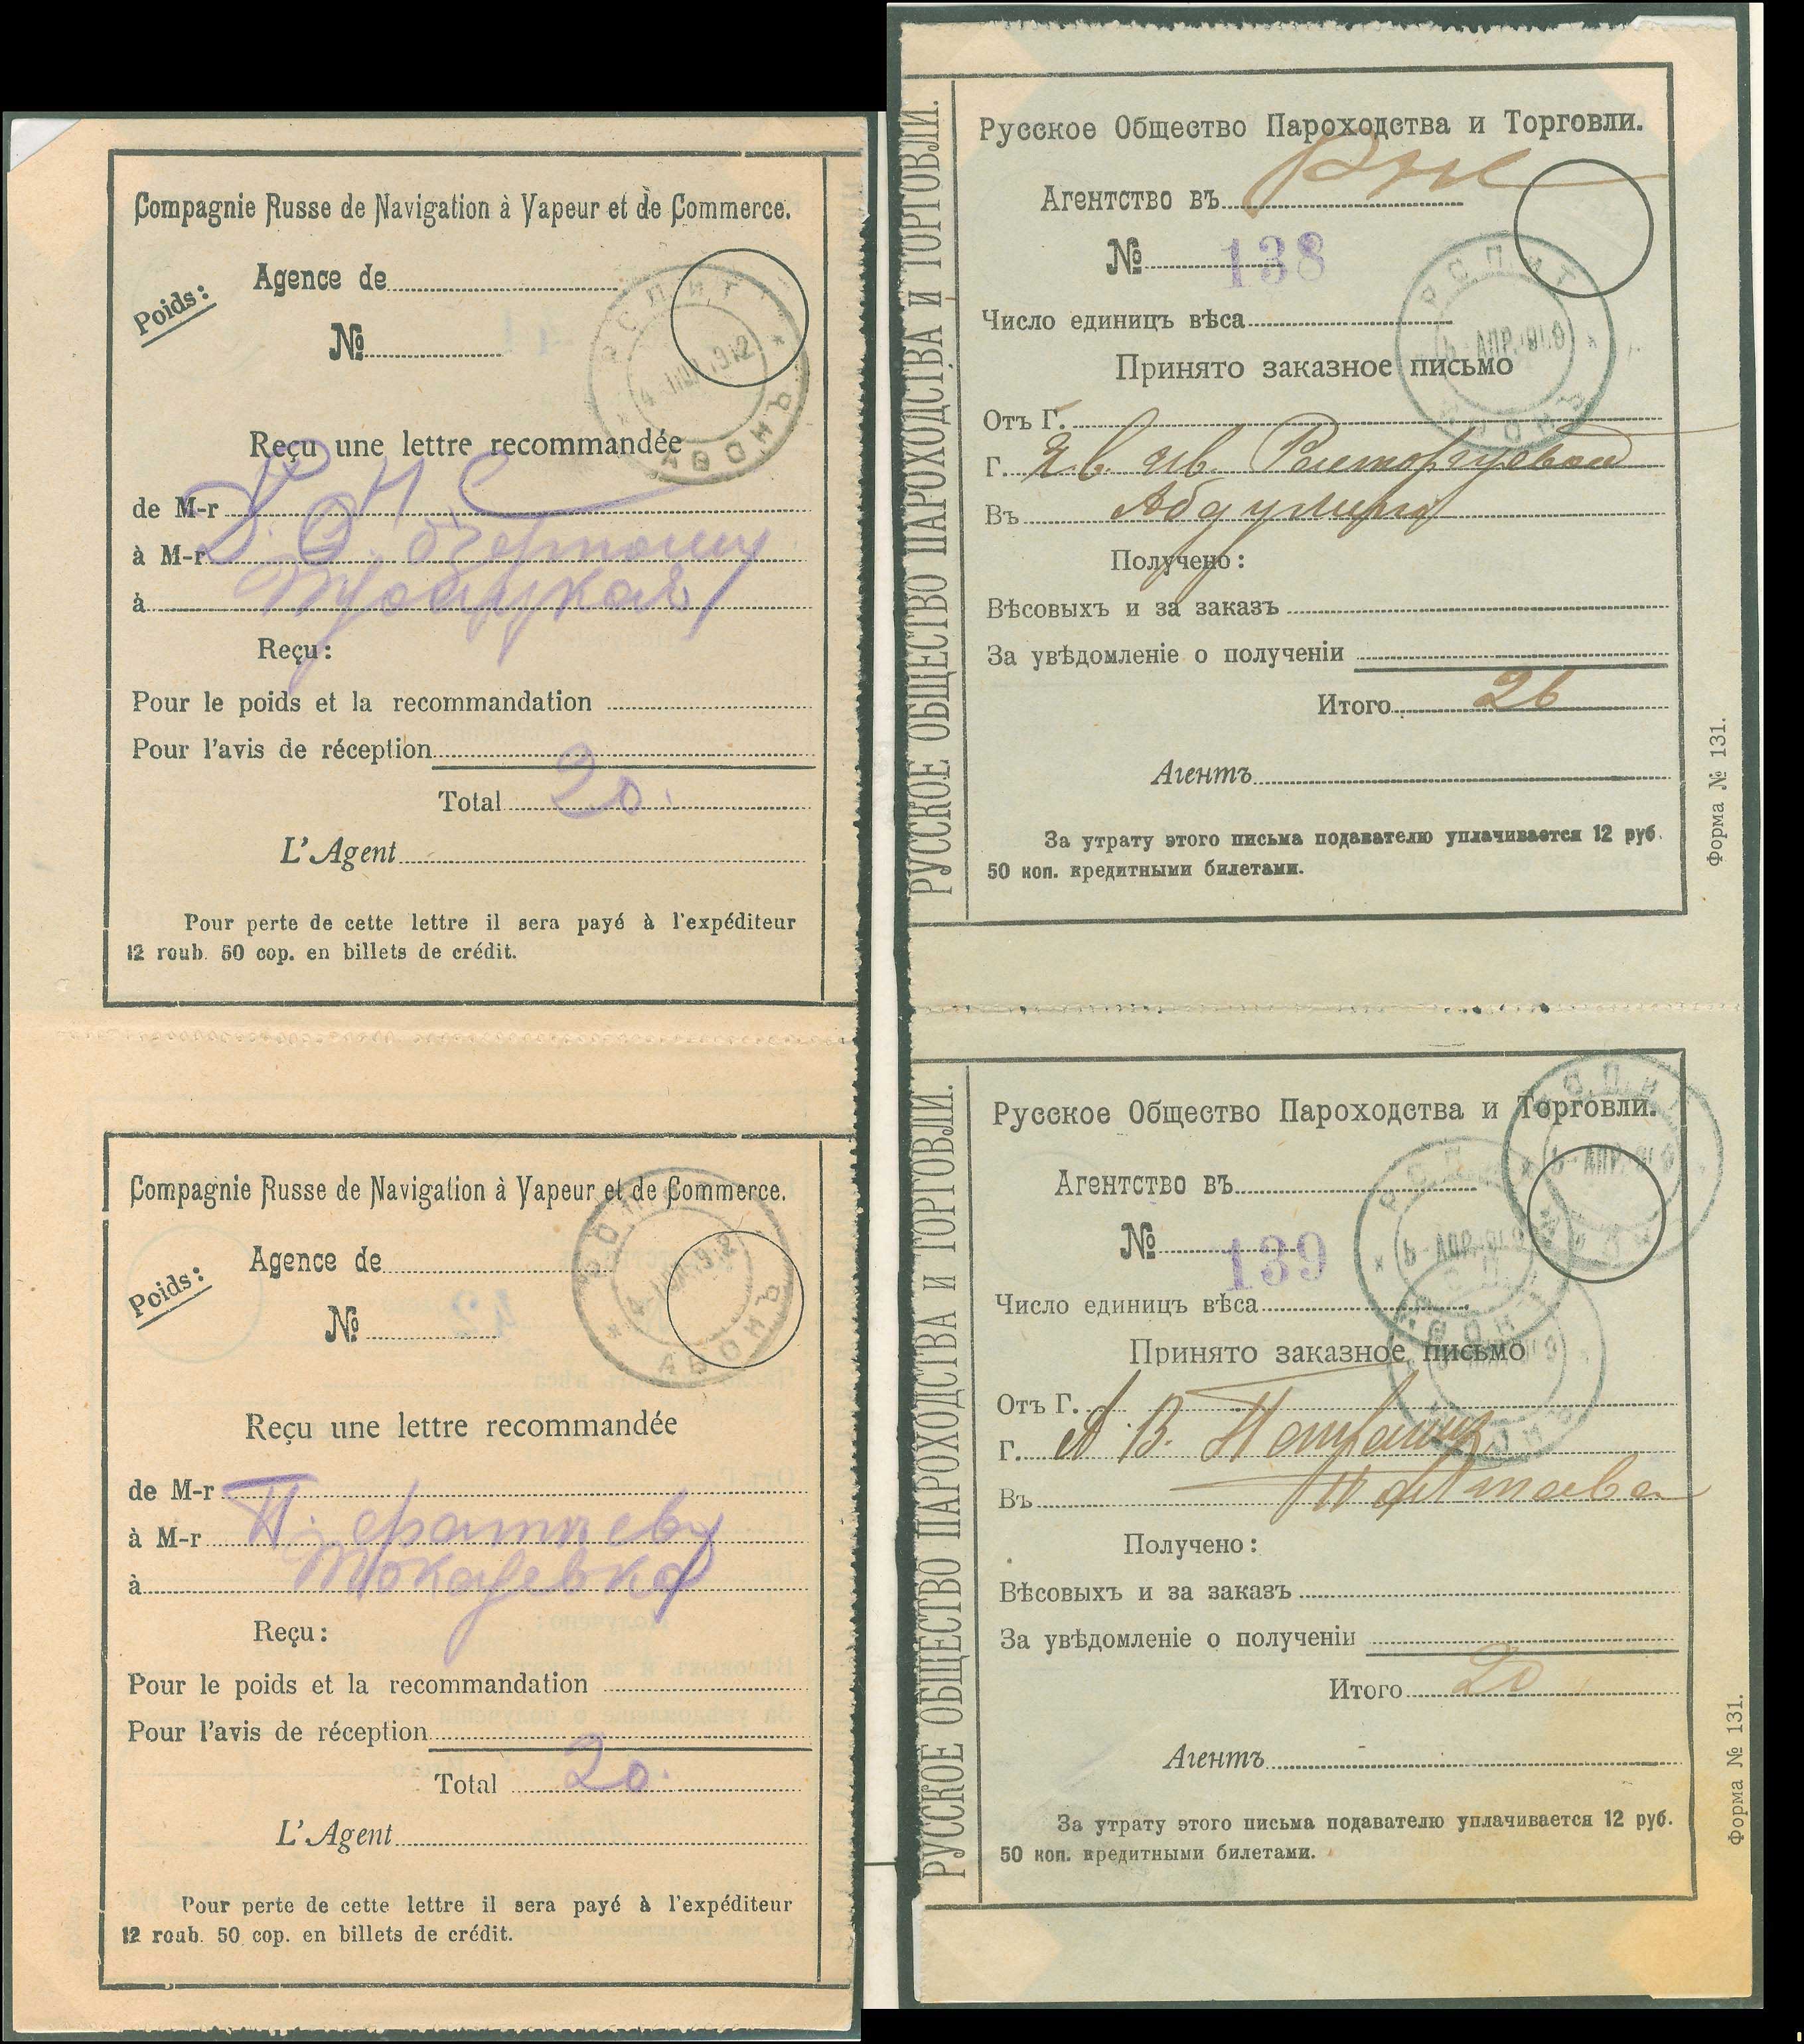 Compagnie Russe de Navigation à Vapeur et de Commerce.
Poids:
Agence de
№
Р.О.П.иТ.
4 1912
АѲОНЪ
Reçu une lettre recommandée
de M-r
à M-r
à
Reçu:
Pour le poids et la recommandation
Pour l'avis de réception
Total 20.
L'Agent
Pour perte de cette lettre il sera payé à l'expéditeur
12 roub. 50 cop. en billets de crédit.
Compagnie Russe de Navigation à Vapeur et de Commerce.
Poids:
Agence de
№
4 1912
АѲОНЪ
Reçu une lettre recommandée
de M-r
à M-r П.
à Токаревка
Reçu:
Pour le poids et la recommandation
Pour l'avis de réception
Total 20.
L'Agent
Pour perte de cette lettre il sera payé à l'expéditeur
12 roub. 50 cop. en billets de crédit.
РУССКОЕ ОБЩЕСТВО ПАРОХОДСТВА И ТОРГОВЛИ.
Русское Общество Пароходства и Торговли.
Агентство въ
№ 138
Р.О.П.иТ.
АПР.
Число единицъ вѣса
Принято заказное письмо
Отъ Г.
Г.
Въ Абдулино
Получено:
Вѣсовыхъ и за заказъ
За увѣдомленіе о полученіи
Итого 26
Агентъ
За утрату этого письма подавателю уплачивается 12 руб.
50 коп. кредитными билетами.
Форма № 131.
РУССКОЕ ОБЩЕСТВО ПАРОХОДСТВА И ТОРГОВЛИ.
Русское Общество Пароходства и Торговли.
Агентство въ
№ 139
Число единицъ вѣса
Принято заказное письмо
Отъ Г.
Г. А. В.
Въ
Получено:
Вѣсовыхъ и за заказъ
За увѣдомленіе о полученіи
Итого 20
Агентъ
За утрату этого письма подавателю уплачивается 12 руб.
50 коп. кредитными билетами.
Форма № 131.